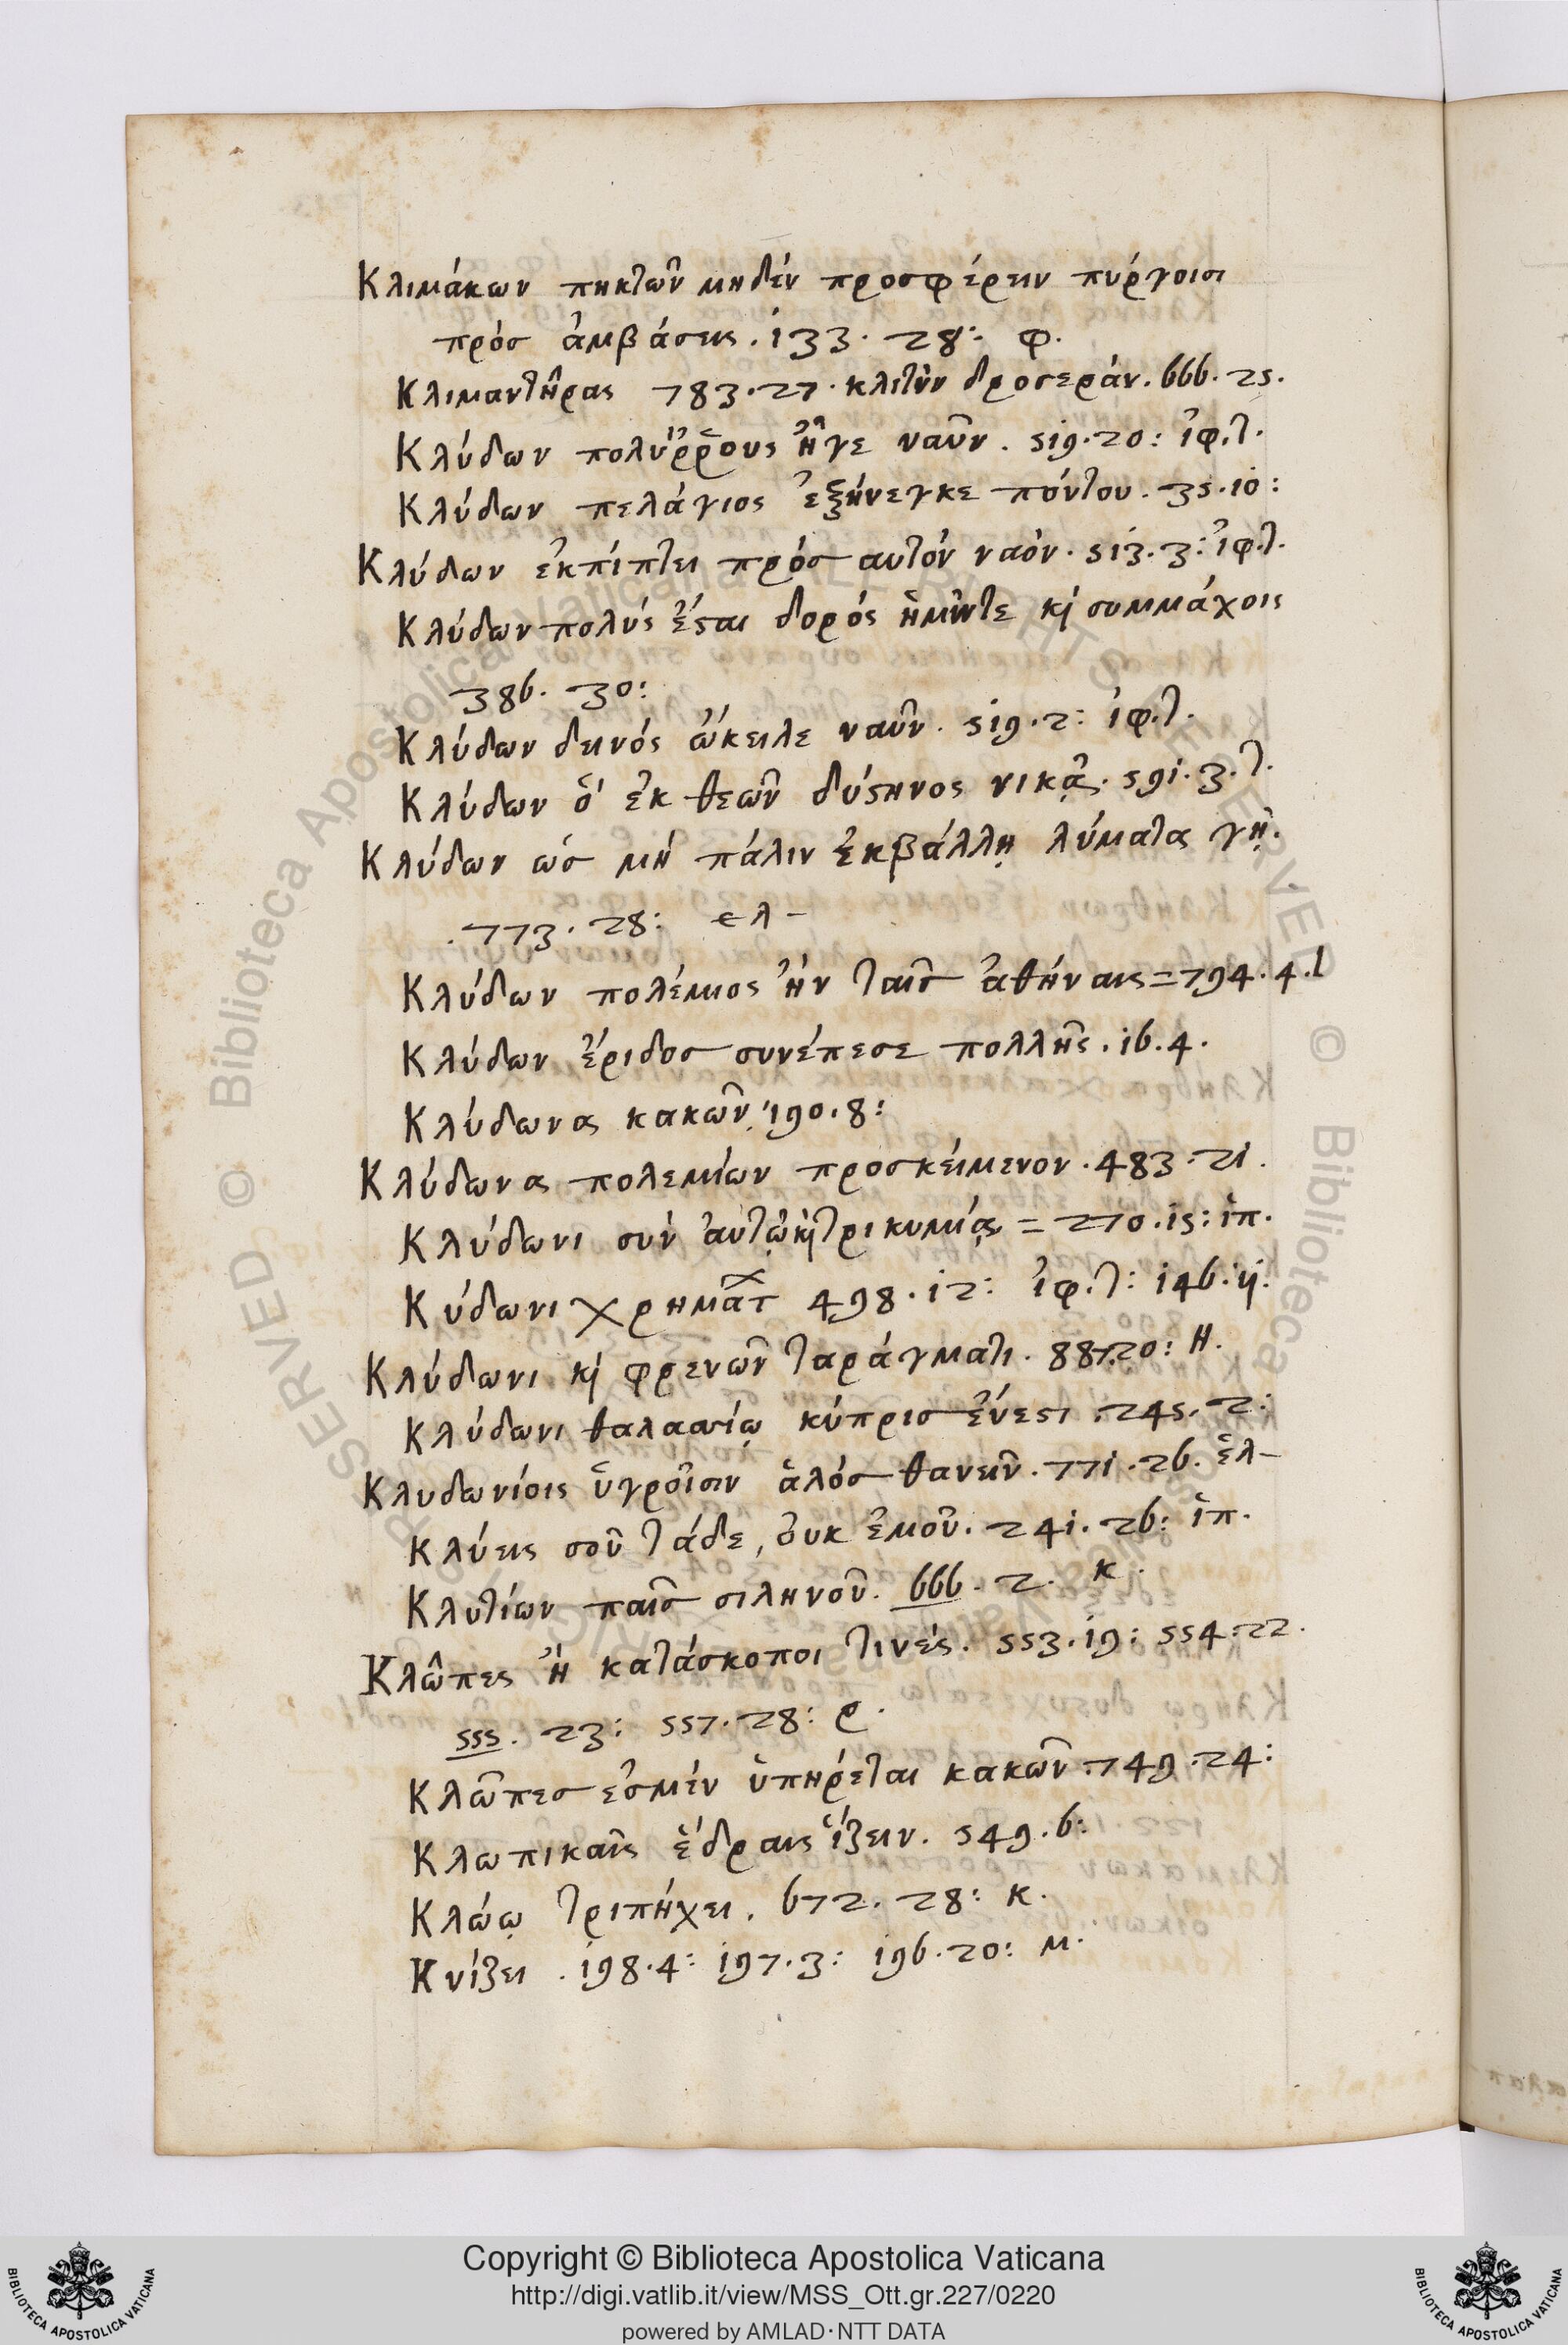 Κλιμάκων πηκτῶν μηδέν προσφέρειν πύργοισι
πρός ἀμβάσεις. 133. 28: φ.
Κλιμαντῆρας 783.27. κλιτὺν δροσεράν. 666. 25.
Κλύδων πολύῤῥους ἦγε ναῦν. 519.20: ἰφ.τ.
Κλύδων πελάγιος ἐξήνεγκε πόντου. 35.10:
Κλύδων ἐκπίπτει πρός αυτόν ναόν. 513.3: ἰφ.τ.
Κλύδων πολύς ἔσται δορός ἡμῖντε κ̀ συμμάχοις
386. 30:
Κλύδων δεινός ὤκειλε ναῦν. 519.2: ἰφ.τ.
Κλύδων ὅ ἐκ θεῶν δύστηνος νικᾷ. 591.3.τ.
Κλύδων ὡς μή πάλιν ἐκβάλλῃ λύματα γῇ.
.773. 28: ελ-
Κλύδων πολέμιος ἤν ταῖς ἀθήναις=794.4.
Κλύδων ἔριδος συνέπεσε πολλῆς. 16.4.
Κλύδωνας κακῶν. 190.8:
Κλύδωνας πολεμίων προσκείμενον. 483.21.
Κλύδωνι σύν ἀυτῷ κ̀ τρικυμίᾳς = 270.15: ἱπ.
Κύδωνι χρημάτ 498.12: ἰφ.τ: 146.
Κλύδωνι κ̀ φρενῶν ταράγματι. 887.20: Η.
Κλύδωνι θαλασσίῳ κύπρις ἔνεστι .245.2:
Κλυδωνίοις ὑγροῖσιν ἁλός θανεῖν. 771.26. ἑλ-
Κλύεις σοῦ τάδε, ὀυκ ἐμοῦ. 241.26: ἱπ.
Κλυτίων παῖς σιληνοῦ. 666. 2. κ.
Κλῶπες ἤ κατάσκοποι τινές. 553.19: 554:22.
555. 23: 557.28: ρ.
Κλῶπες εσμέν ὑπηρέται κακῶν. 749.24:
Κλωπικαῖς ἕδραις ἵζειν. 549.6:
Κλώῳ τριπήχει. 672. 28: κ.
Κνίζει. 198.4: 197.3: 196.20: μ.
© Biblioteca Apostolica Vaticana ALL RIGHTS RESERVED © Biblioteca
Copyright © Biblioteca Apostolica Vaticana
http://digi.vatlib.it/view/MSS_Ott.gr.227/0220
powered by AMLAD·NTT DATA
BIBLIOTECA APOSTOLICA VATICANA
BIBLIOTECA APOSTOLICA VATICANA